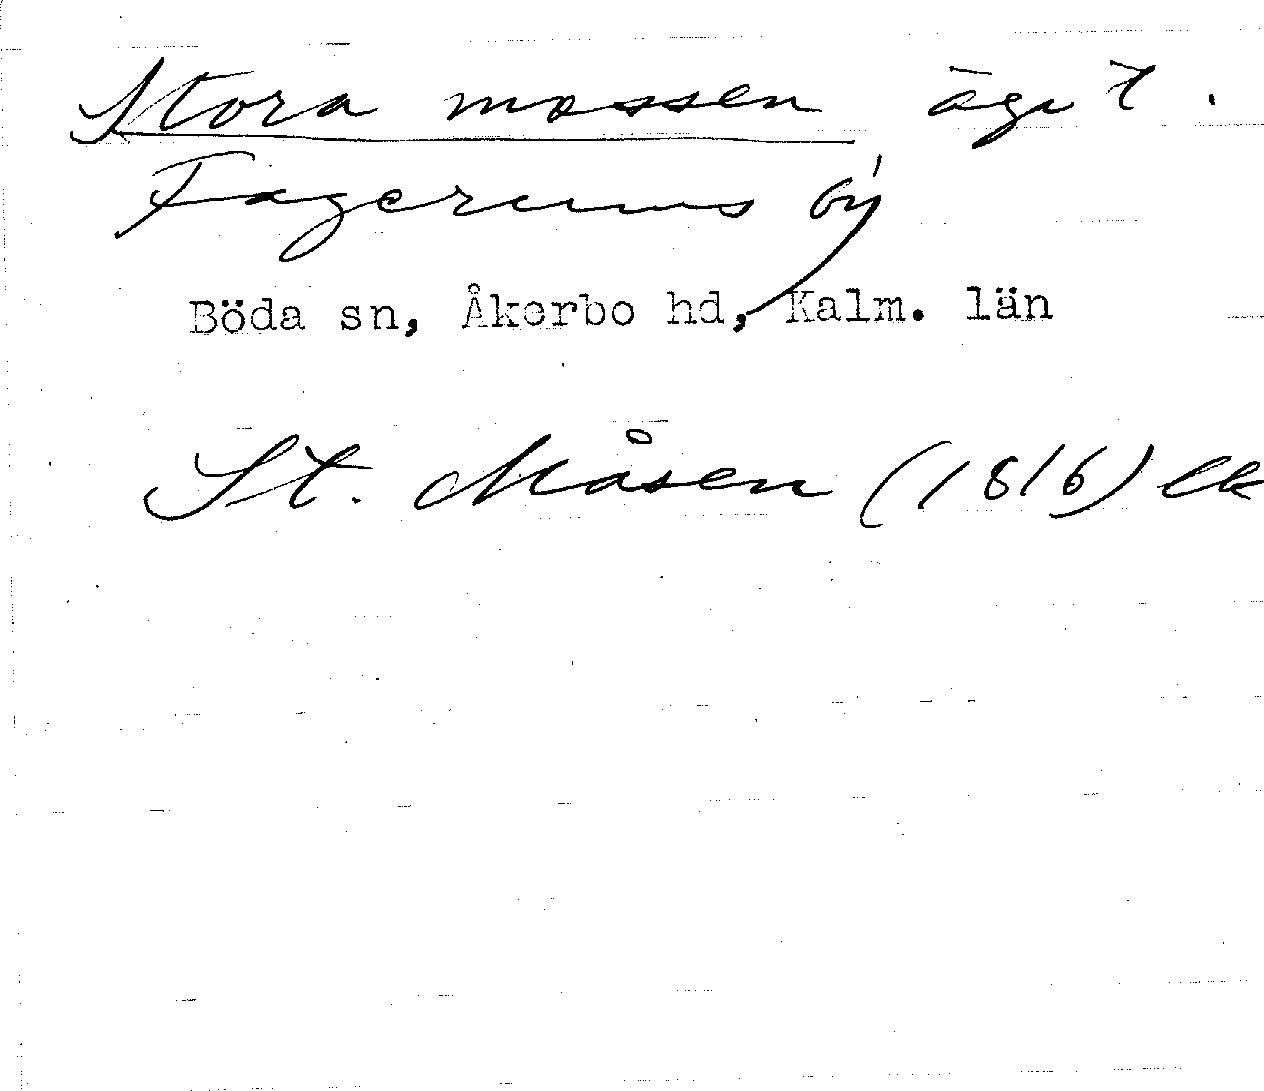 Stora mossen äga t.
Fagerums by
Böda sn, Åkerbo hd, Kalm. län
St. Måsen (1816) lk